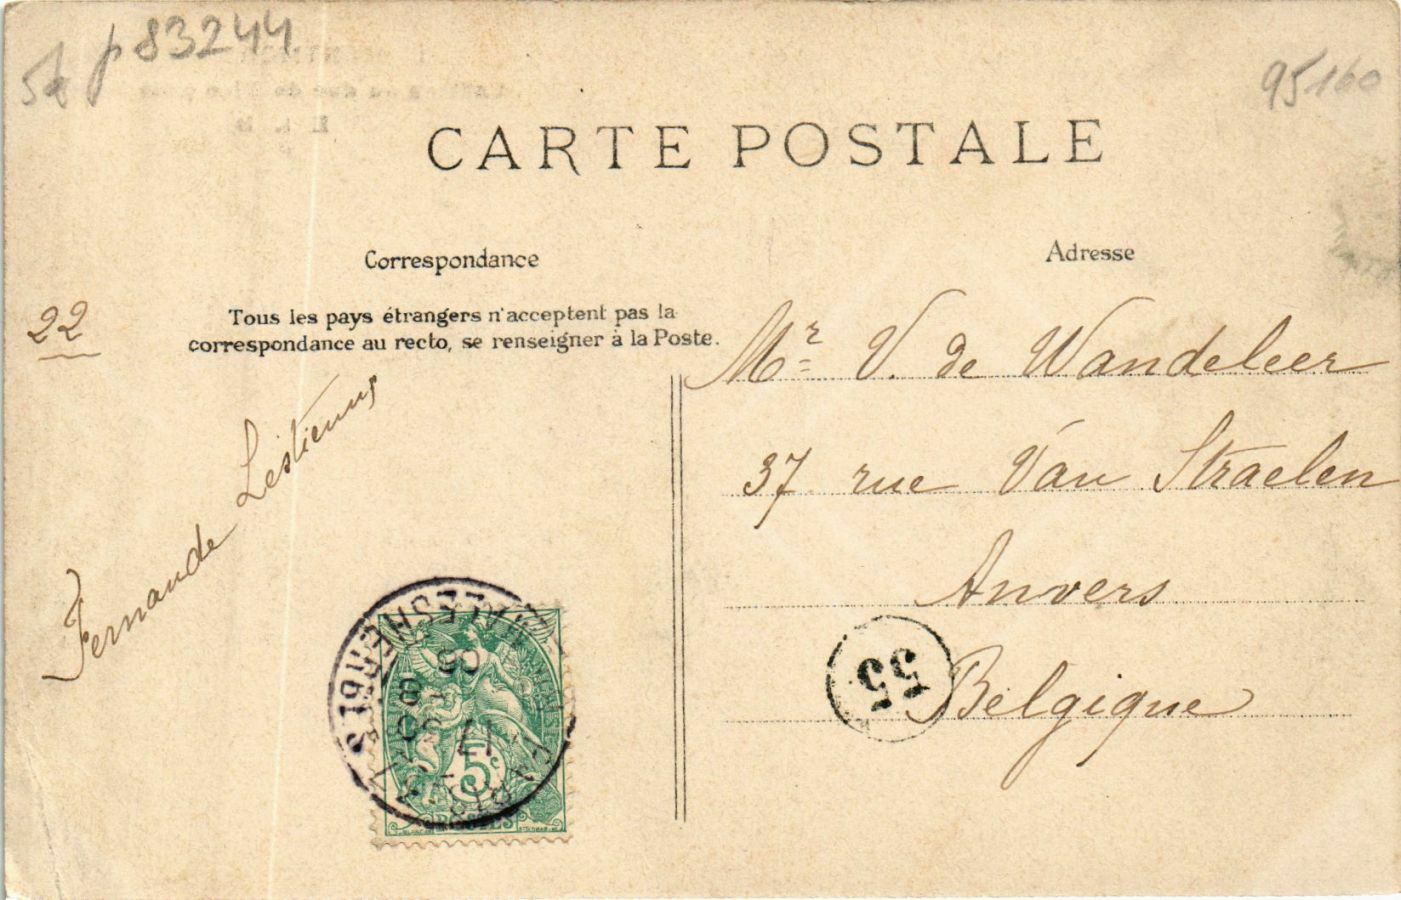 p 83244
95160
CARTE POSTALE
Correspondance
Adresse
Tous les pays étrangers n'acceptent pas la
correspondance au recto, se renseigner à la Poste.
22
Fernande Lestienne
Mr V. de Wandeleer
37 rue Van Straelen
Anvers
Belgique
55
5c
POSTES